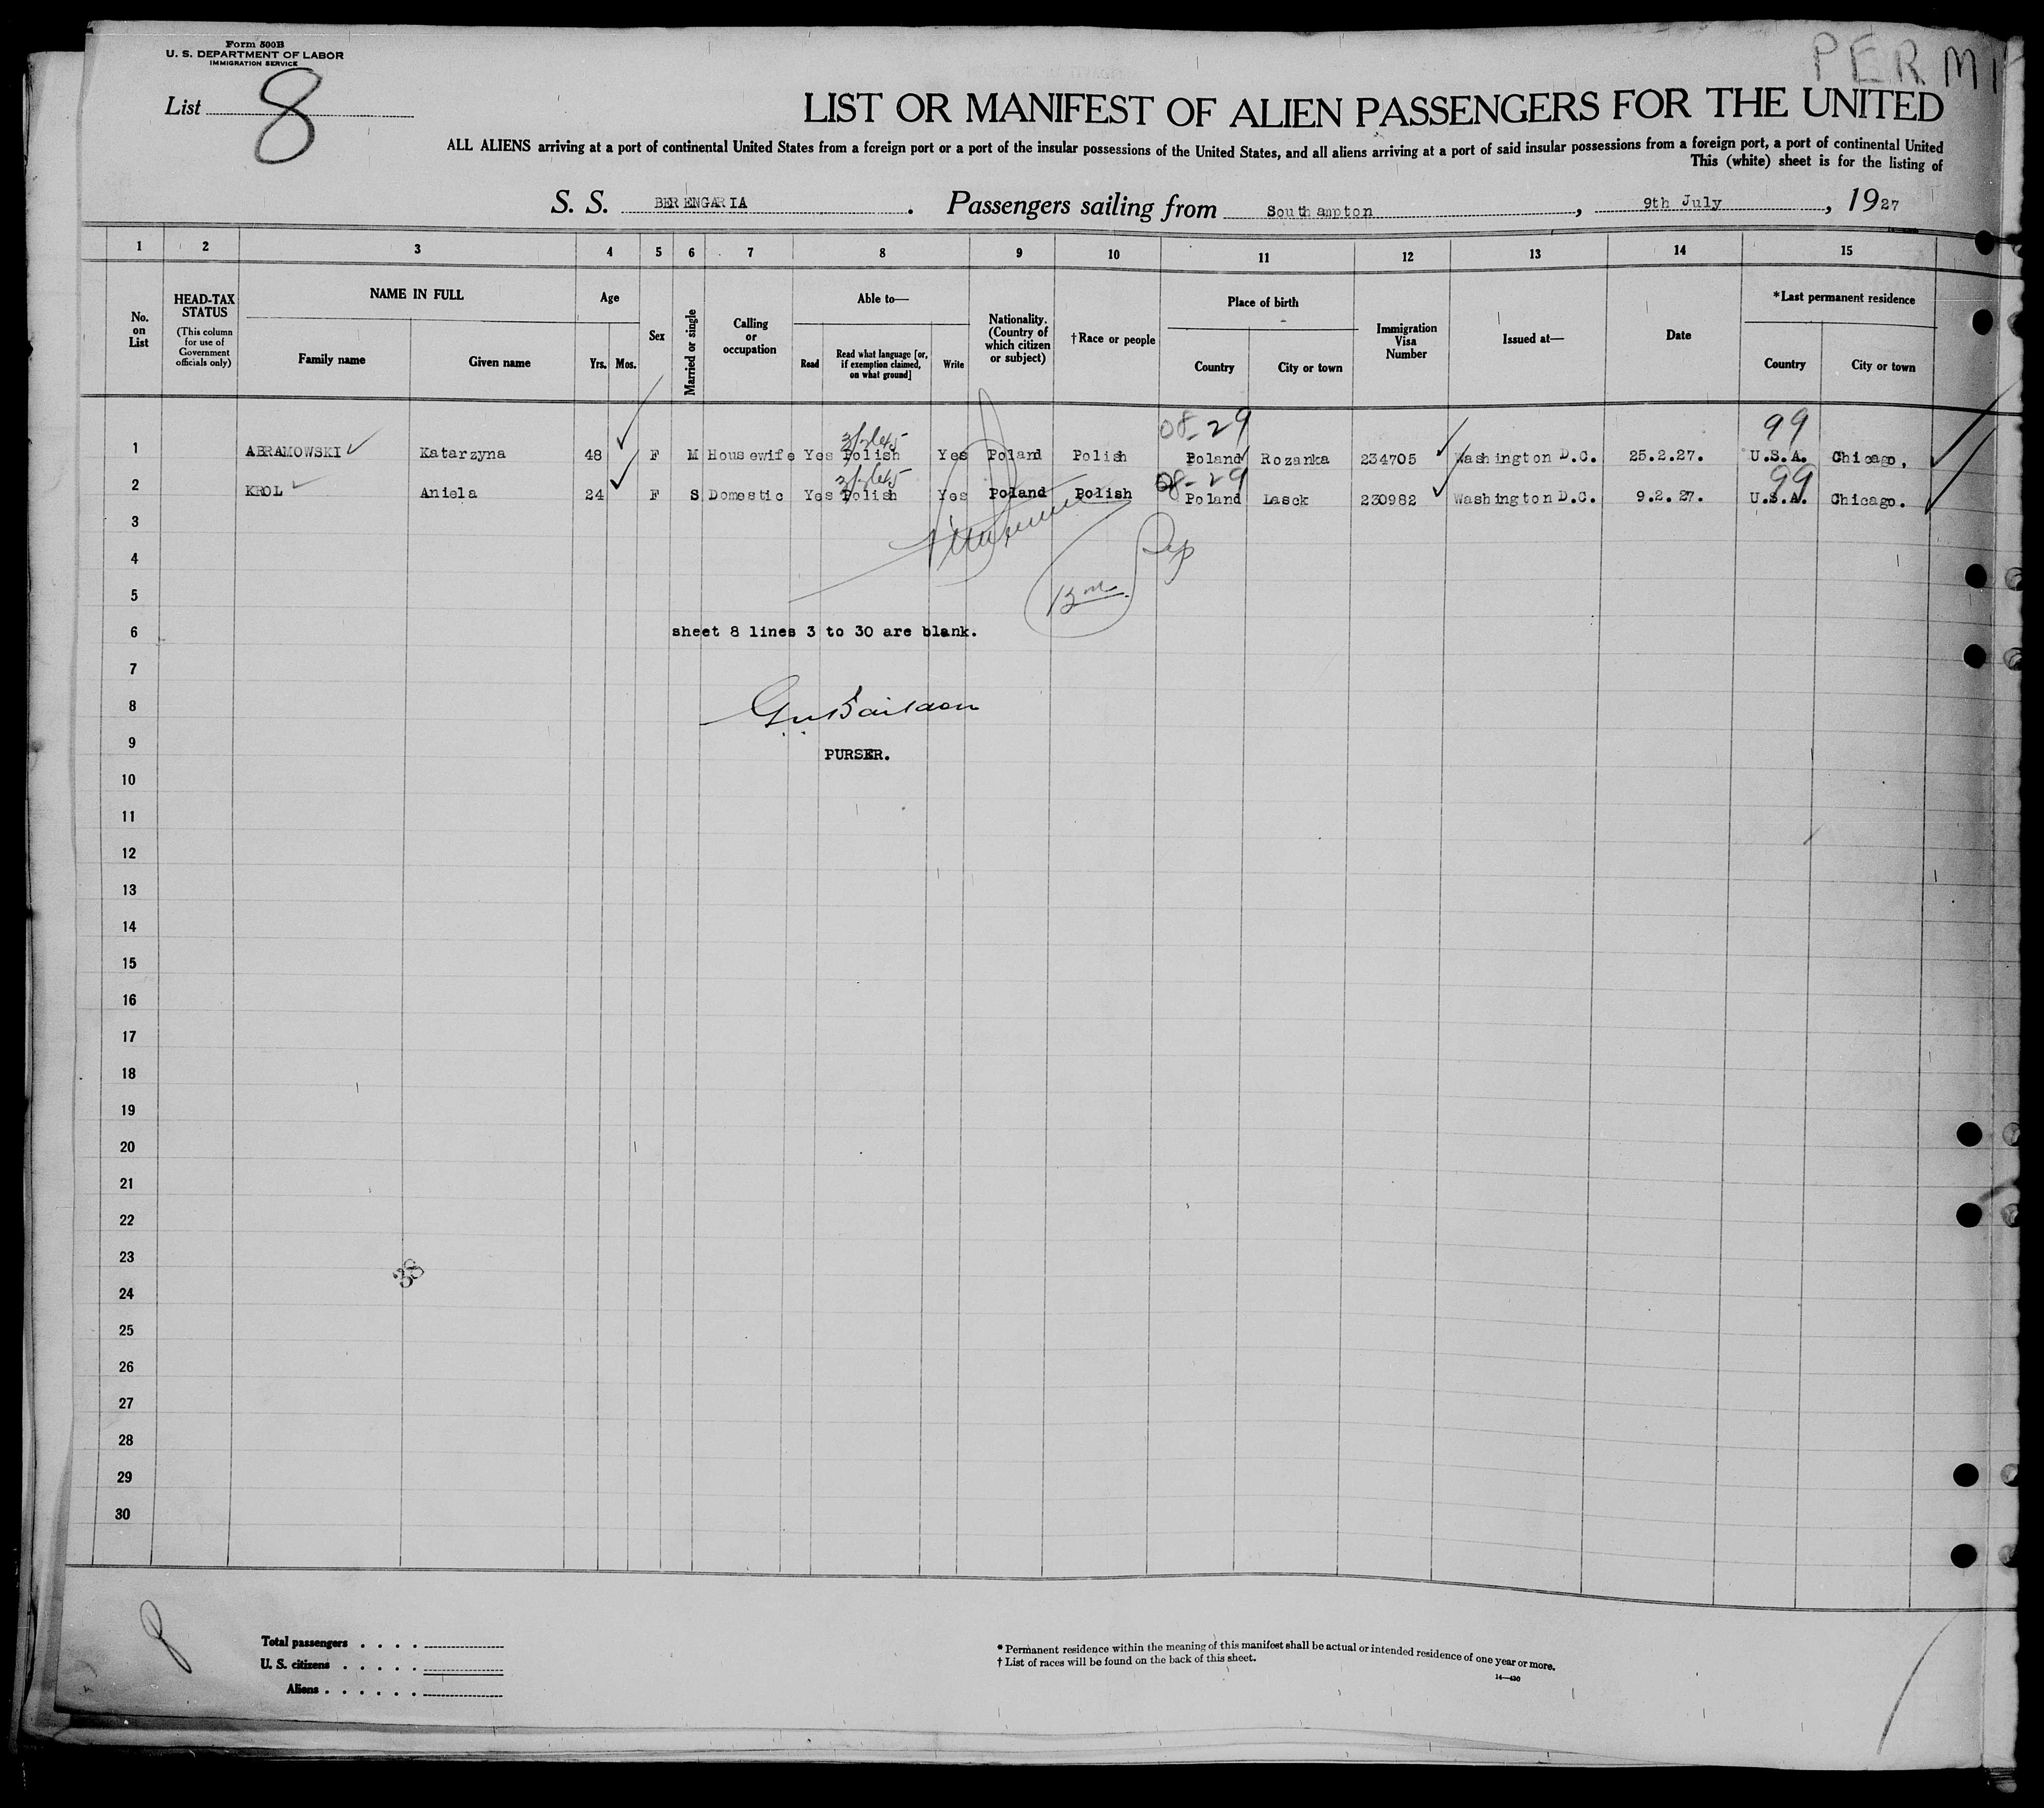 Form 500B
U. S. DEPARTMENT OF LABOR
IMMIGRATION SERVICE
PERMI
List 8
LIST OR MANIFEST OF ALIEN PASSENGERS FOR THE UNITED
ALL ALIENS arriving at a port of continental United States from a foreign port or a port of the insular possessions of the United States, and all aliens arriving at a port of said insular possessions from a foreign port, a port of continental United
This (white) sheet is for the listing of
S. S. BERENGARIA. Passengers sailing from Southampton, 9th July, 1927
1 2 3 4 5 6 7 8 9 10 11 12 13 14 15
No. on List
HEAD-TAX STATUS
(This column for use of Government officials only)
NAME IN FULL
Family name
Given name
Age
Yrs. Mos.
Sex
Married or single
Calling or occupation
Able to—
Read
Read what language [or, if exemption claimed, on what ground]
Write
Nationality. (Country of which citizen or subject)
†Race or people
Place of birth
Country
City or town
Immigration Visa Number
Issued at—
Date
*Last permanent residence
Country
City or town
08-29 99
1 ABRAMOWSKI Katarzyna 48 F M Housewife Yes Polish Yes Poland Polish Poland Rozanka 234705 Washington D.C. 25.2.27. U.S.A. Chicago,
08-29 99
2 KROL Aniela 24 F S Domestic Yes Polish Yes Poland Polish Poland Lasck 230982 Washington D.C. 9.2.27. U.S.A. Chicago.
3
4
5
6 sheet 8 lines 3 to 30 are blank.
7
8
9 PURSER.
10
11
12
13
14
15
16
17
18
19
20
21
22
23
38
24
25
26
27
28
29
30
Total passengers . . . .
U. S. citizens . . . . .
Aliens . . . . . .
* Permanent residence within the meaning of this manifest shall be actual or intended residence of one year or more.
† List of races will be found on the back of this sheet.
14—430